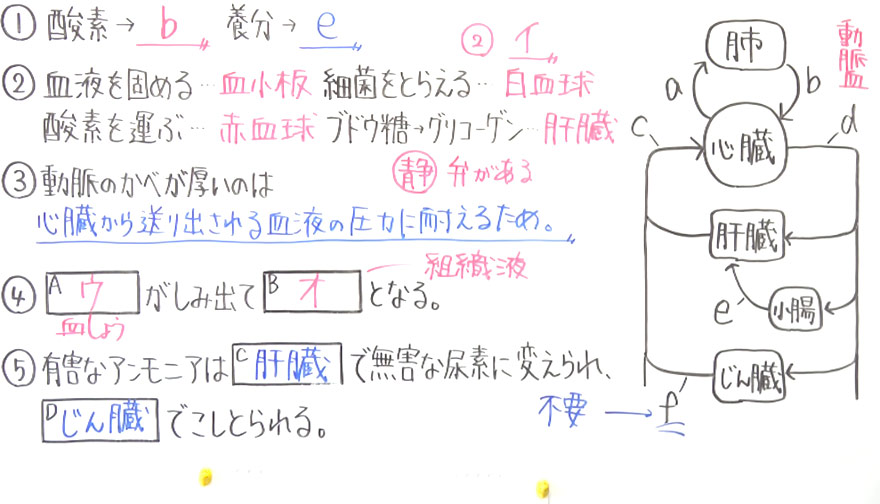 ① 酸素→ b 養分→ e
② イ
② 血液を固める…血小板 細菌をとらえる…白血球
酸素を運ぶ…赤血球 ブドウ糖→グリコーゲン…肝臓
③ 動脈のかべが厚いのは
静 弁がある
心臓から送り出される血液の圧力に耐えるため。
④ A ウ がしみ出て B オ となる。
組織液
血しょう
⑤ 有害なアンモニアは C 肝臓 で無害な尿素に変えられ、
D じん臓 でこしとられる。
不要 → f
肺
動脈血
a
b
c
心臓
d
肝臓
e
小腸
じん臓